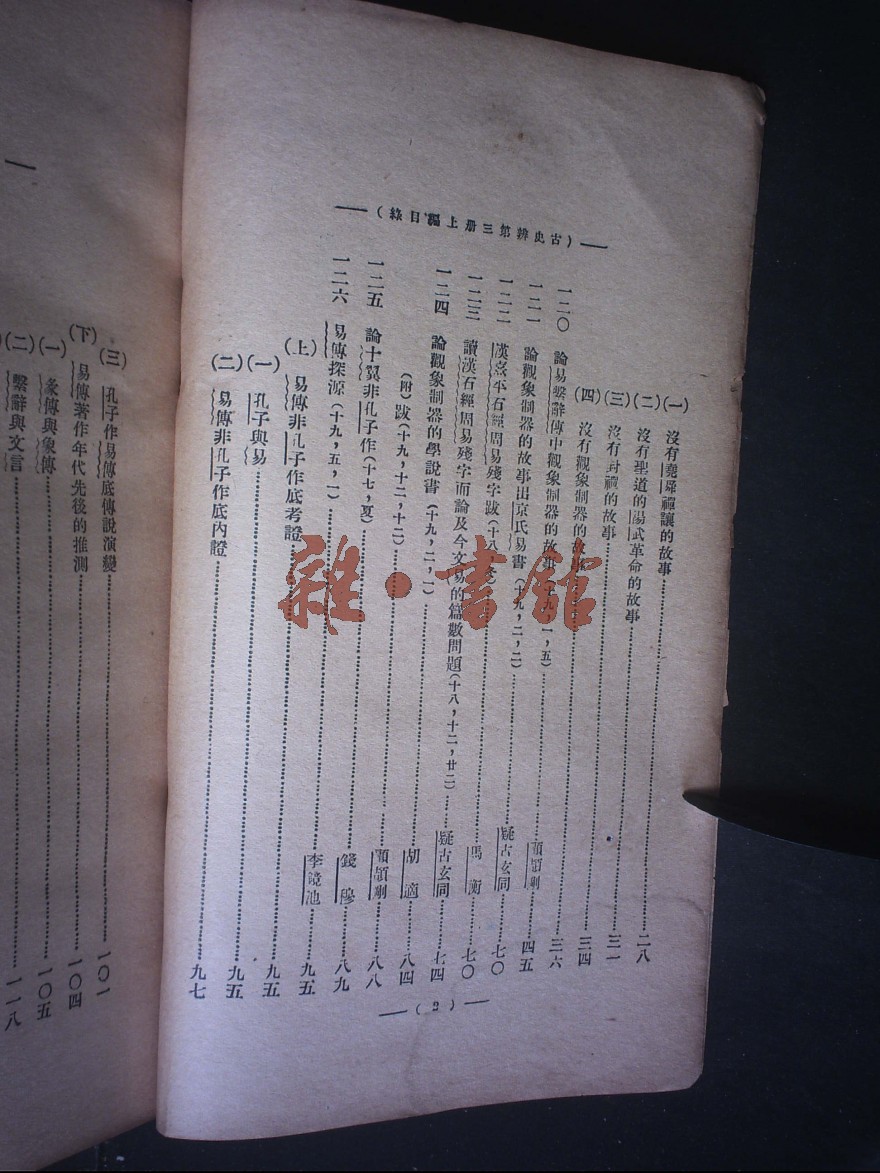 (古史辨第三册上編目錄)
(一) 沒有堯舜禪讓的故事……二八
(二) 沒有聖道的湯武革命的故事……三一
(三) 沒有封禪的故事……三四
(四) 沒有觀象制器的故事……三六
一二〇 論易繫辭傳中觀象制器的故事(十九,一,五)……顧頡剛……四五
一二一 論觀象制器的故事出京氏易書(十九,二,二)……疑古玄同……七〇
一二二 漢熹平石經周易殘字跋(十八,冬)……馬衡……七〇
一二三 讀漢石經周易殘字而論及今文易的篇數問題(十八,十二,廿二)……疑古玄同……七四
一二四 論觀象制器的學說書(十九,二,一)……胡適……八四
(附)跋(十九,十二,十二)……顧頡剛……八八
一二五 論十翼非孔子作(十七,夏)……錢穆……八九
一二六 易傳探源(十九,五,一)……李鏡池……九五
(上) 易傳非孔子作底考證……九五
(一) 孔子與易……九五
(二) 易傳非孔子作底內證……九七
(三) 孔子作易傳底傳說演變……一〇一
(下) 易傳著作年代先後的推測……一〇四
(一) 彖傳與象傳……一〇五
(二) 繫辭與文言……一一八
雜·書館